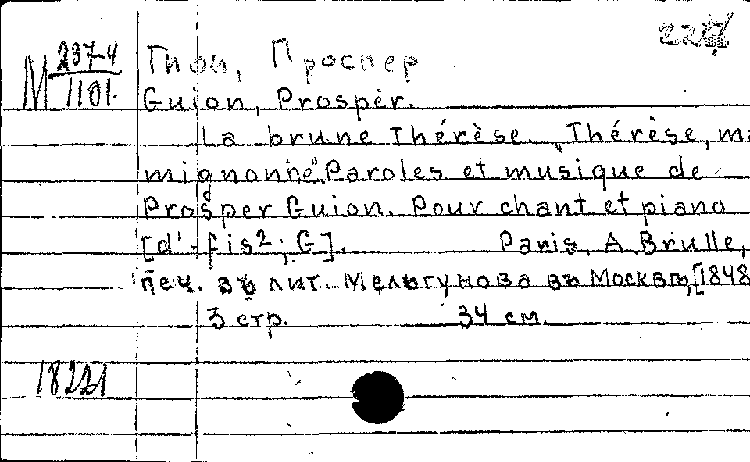 М 237-4
1101.
Гион, Проспер
Guion, Prosper.
La brune Thérèse „Thérèse, ma
mignonne". Paroles et musique de
Prosper Guion. Pour chant et piano
[d'-fis²; G]. Paris, A. Brulle,
печ. въ лит. Мельгунова въ Москвѣ, [1848
3 стр. 34 см.
18221